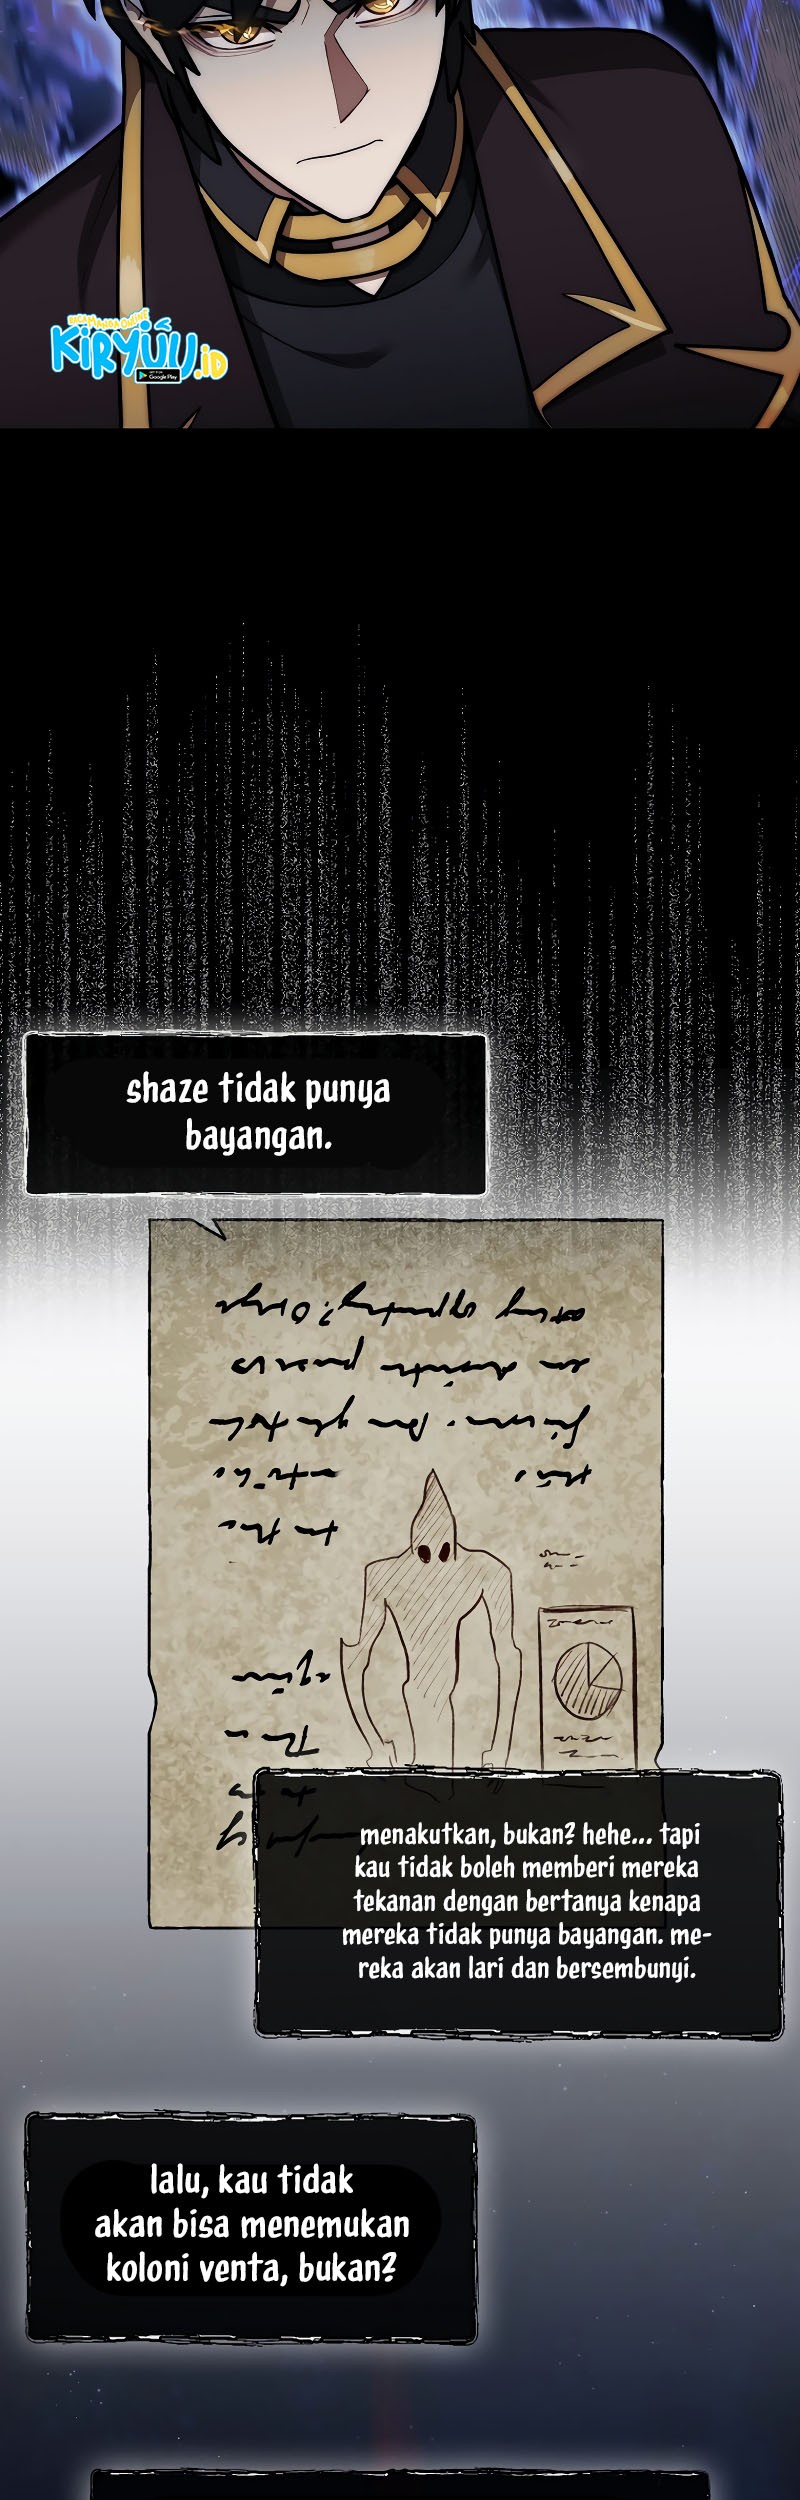 BACA MANGA ONLINE
KIRYUU.ID
Google Play
shaze tidak punya
bayangan.
menakutkan, bukan? hehe... tapi
kau tidak boleh memberi mereka
tekanan dengan bertanya kenapa
mereka tidak punya bayangan. me-
reka akan lari dan bersembunyi.
lalu, kau tidak
akan bisa menemukan
koloni venta, bukan?